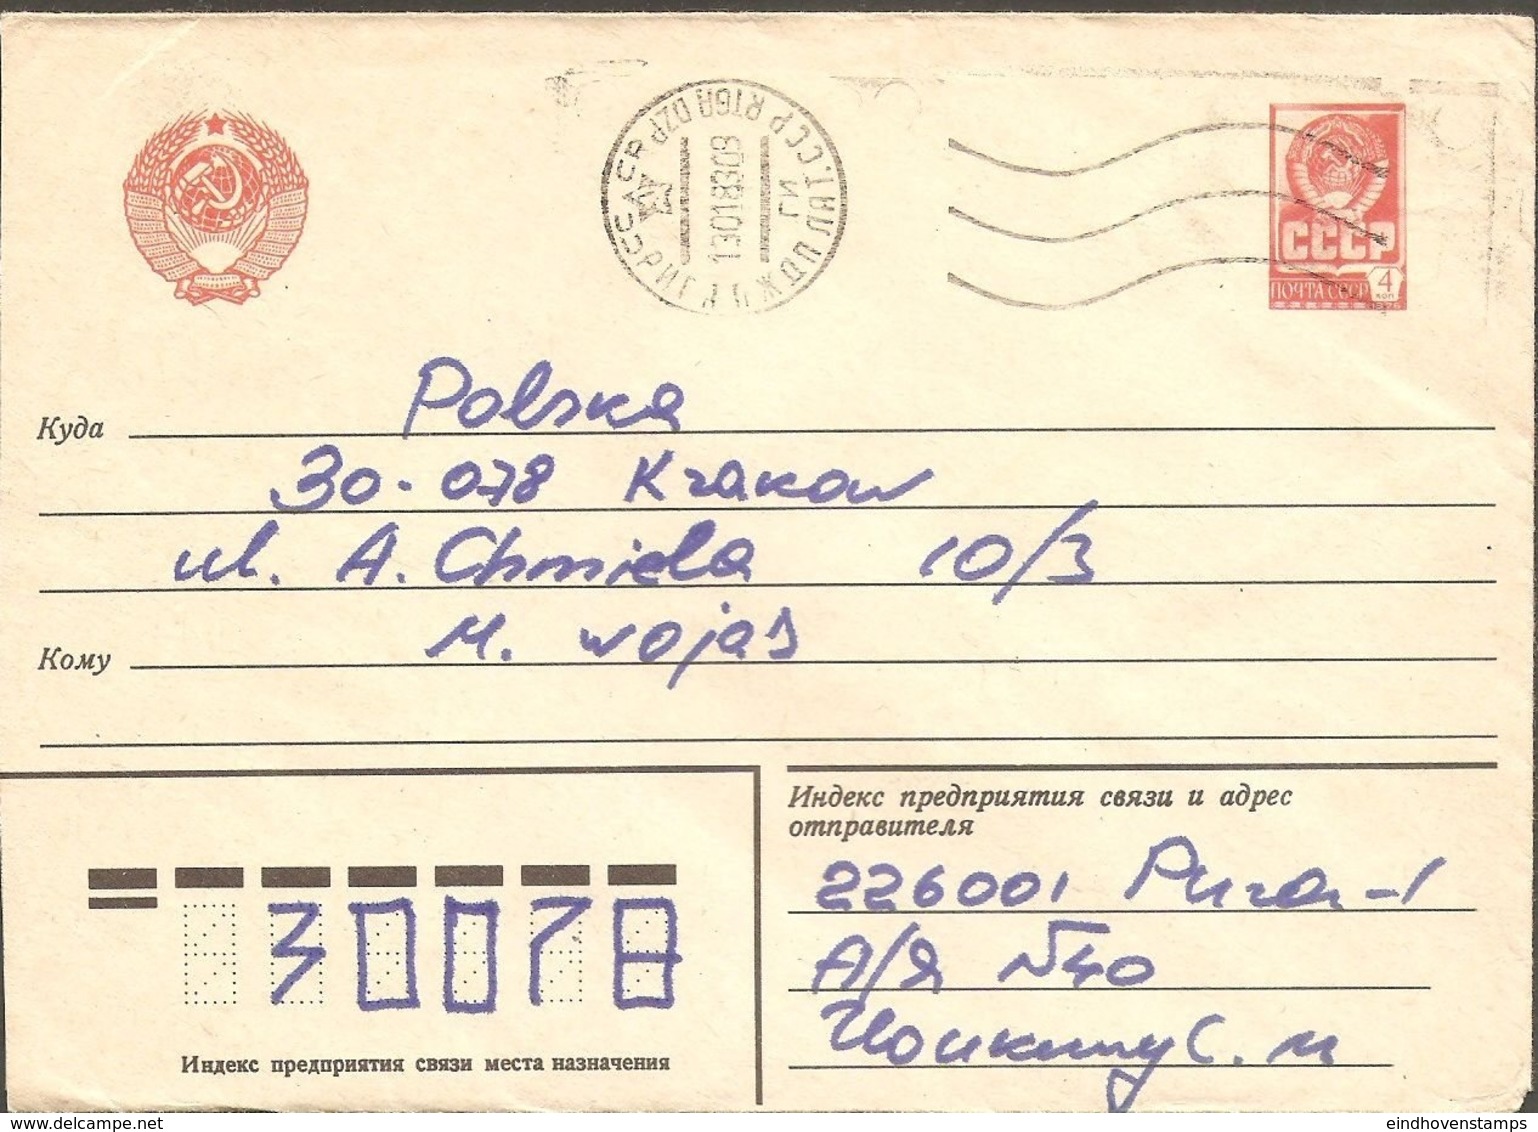 13018308
СССР
ПОЧТА СССР 4
КОП
1976
Куда Polska
30-078 Krakow
ul. A. Chmiela 10/3
Кому M. Wojas
Индекс предприятия связи и адрес
отправителя
226001 Рига-1
А/Я N40
С. М
30078
Индекс предприятия связи места назначения
delcampe.net
eindhovenstamps